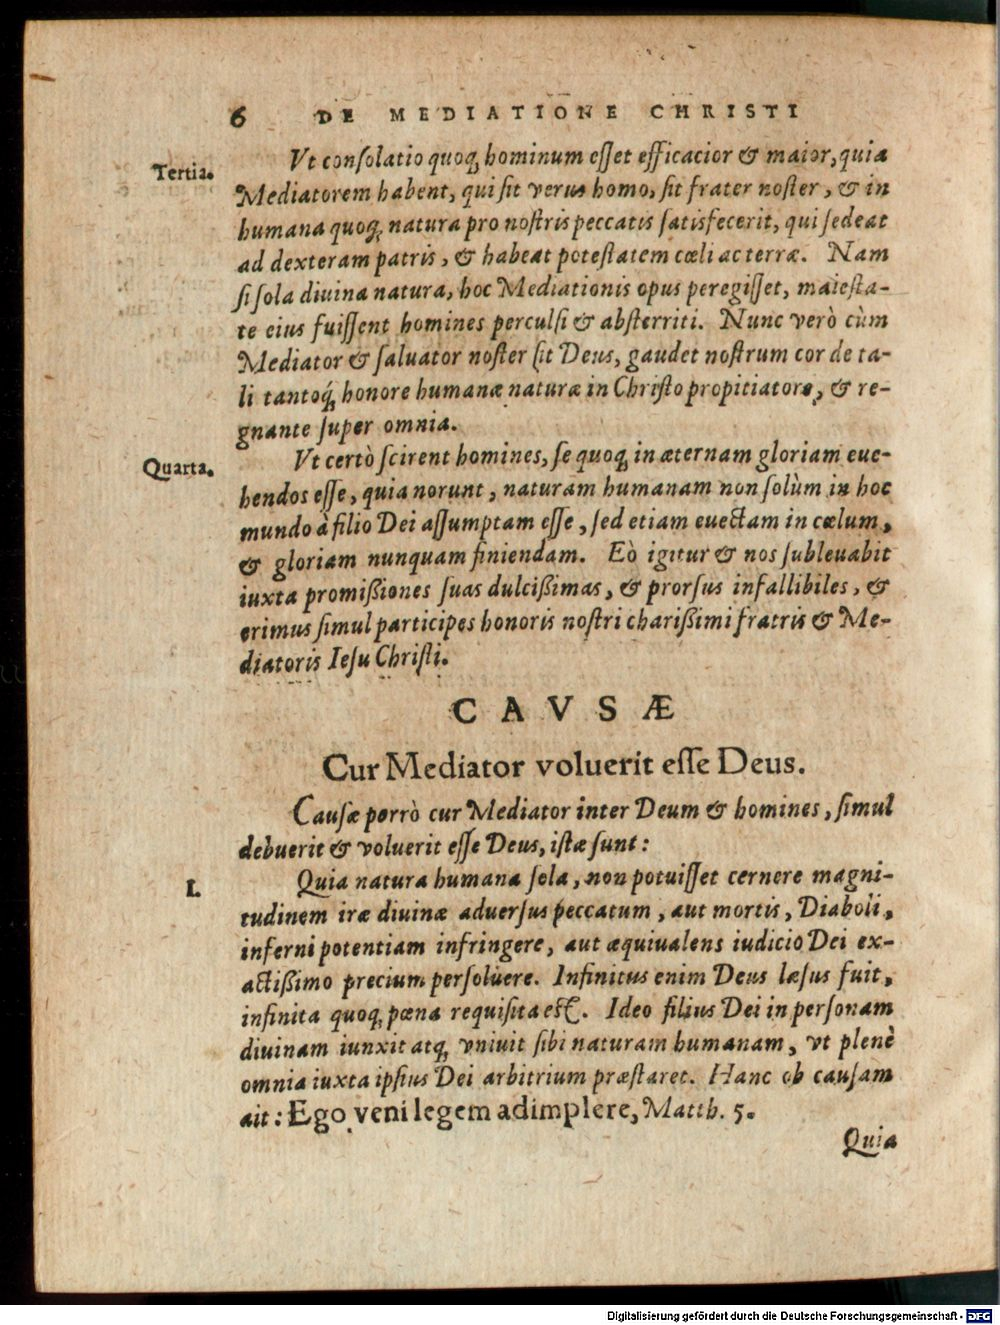 6 DE MEDIATIONE CHRISTI
Tertia. Vt conſolatio quoq́; hominum eſſet efficacior & maior, quia
Mediatorem habent, qui ſit verus homo, ſit frater noſter, & in
humana quoq́; natura pro noſtris peccatis ſatisfecerit, qui ſedeat
ad dexteram patris, & habeat poteſtatem cœli ac terræ. Nam
ſi ſola diuina natura, hoc Mediationis opus peregiſſet, maieſta-
te eius fuiſſent homines perculſi & abſterriti. Nunc verò cùm
Mediator & ſaluator noſter ſit Deus, gaudet noſtrum cor de ta-
li tantoq́; honore humanæ naturæ in Chriſto propitiatore, & re-
gnante ſuper omnia.
Quarta. Vt certò ſcirent homines, ſe quoq́; in æternam gloriam eue-
hendos eſſe, quia norunt, naturam humanam non ſolùm in hoc
mundo à filio Dei aſſumptam eſſe, ſed etiam euectam in cœlum,
& gloriam nunquam finiendam. Eò igitur & nos ſubleuabit
iuxta promiſsiones ſuas dulciſsimas, & prorſus infallibiles, &
erimus ſimul participes honoris noſtri chariſsimi fratris & Me-
diatoris Ieſu Chriſti.
CAVSÆ
Cur Mediator voluerit eſſe Deus.
Cauſæ porrò cur Mediator inter Deum & homines, ſimul
debuerit & voluerit eſſe Deus, iſtæ ſunt:
I. Quia natura humana ſola, non potuiſſet cernere magni-
tudinem iræ diuinæ aduerſus peccatum, aut mortis, Diaboli,
inferni potentiam infringere, aut æquiualens iudicio Dei ex-
actiſsimo precium perſoluere. Infinitus enim Deus læſus fuit,
infinita quoq́; pœna requiſita eſt. Ideo filius Dei in perſonam
diuinam iunxit atq́; vniuit ſibi naturam humanam, vt plenè
omnia iuxta ipſius Dei arbitrium præſtaret. Hanc ob cauſam
ait: Ego veni legem adimplere, Matth. 5.
Quia
Digitalisierung gefördert durch die Deutsche Forschungsgemeinschaft - DFG